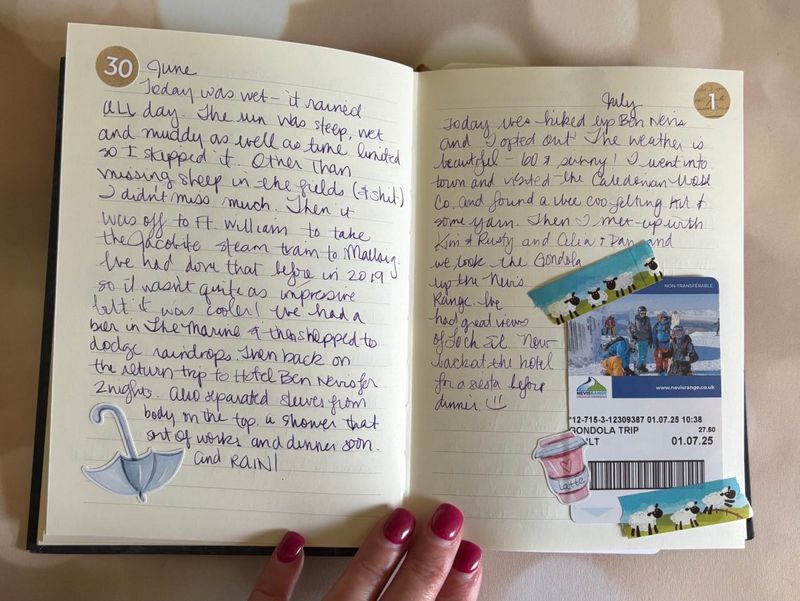 30
June
Today was wet - it rained
ALL day. The run was steep, wet
and muddy as well as time limited
so I skipped it. Other than
missing sheep in the fields (& shit)
I didn't miss much. Then it
was off to Ft. William to take
the Jacobite steam train to Mallaig.
We had done that before in 2019
so it wasn't quite as impressive
but it was cooler! We had a
bier in The Marine & then shopped to
dodge raindrops. Then back on
the return trip to Hotel Ben Nevis for
2 nights. Also separated sleeves from
body on the top. a shower that
sort of works and dinner soon.
and RAIN!
July
1
Today was hiked up Ben Nevis
and I opted out! The weather is
beautiful - 60 & sunny! I went into
town and visited the Caledonian Wool
Co. and found a wee coo felting kit &
some yarn. Then I met up with
Kim & Rusty and Celia & Dan and
we took the Gondola
up the Nevis
Range. We
had great views
of Loch Eil. Now
back at the hotel
for a siesta before
dinner.
NON-TRANSFÉRABLE
NEVISRANGE
www.nevisrange.co.uk
12-715-3-12309387 01.07.25 10:38
GONDOLA TRIP 27.50
01.07.25
latte